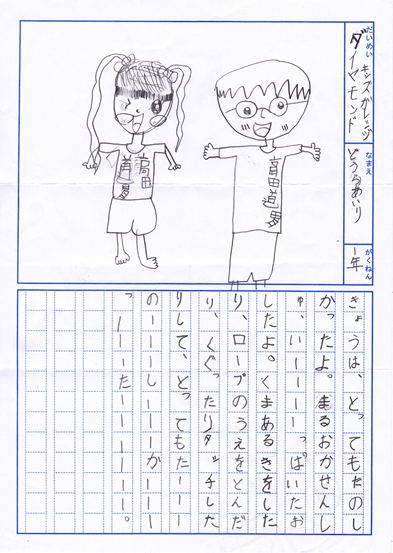 だいめい
キッズカレッジ
ダイヤモンド
なまえ
がくねん
1年
高田
道場
高田道場
きょうは、とってもたのし
かったよ。まるおかせんし
ゅ、いーーーーっぱいたお
したよ。くまあるきをした
り、ロープのうえをとんだ
り、くぐったりタッチした
りして、とってもたーーー
のーーーしーーがーーー
っーーーたーーーーー。